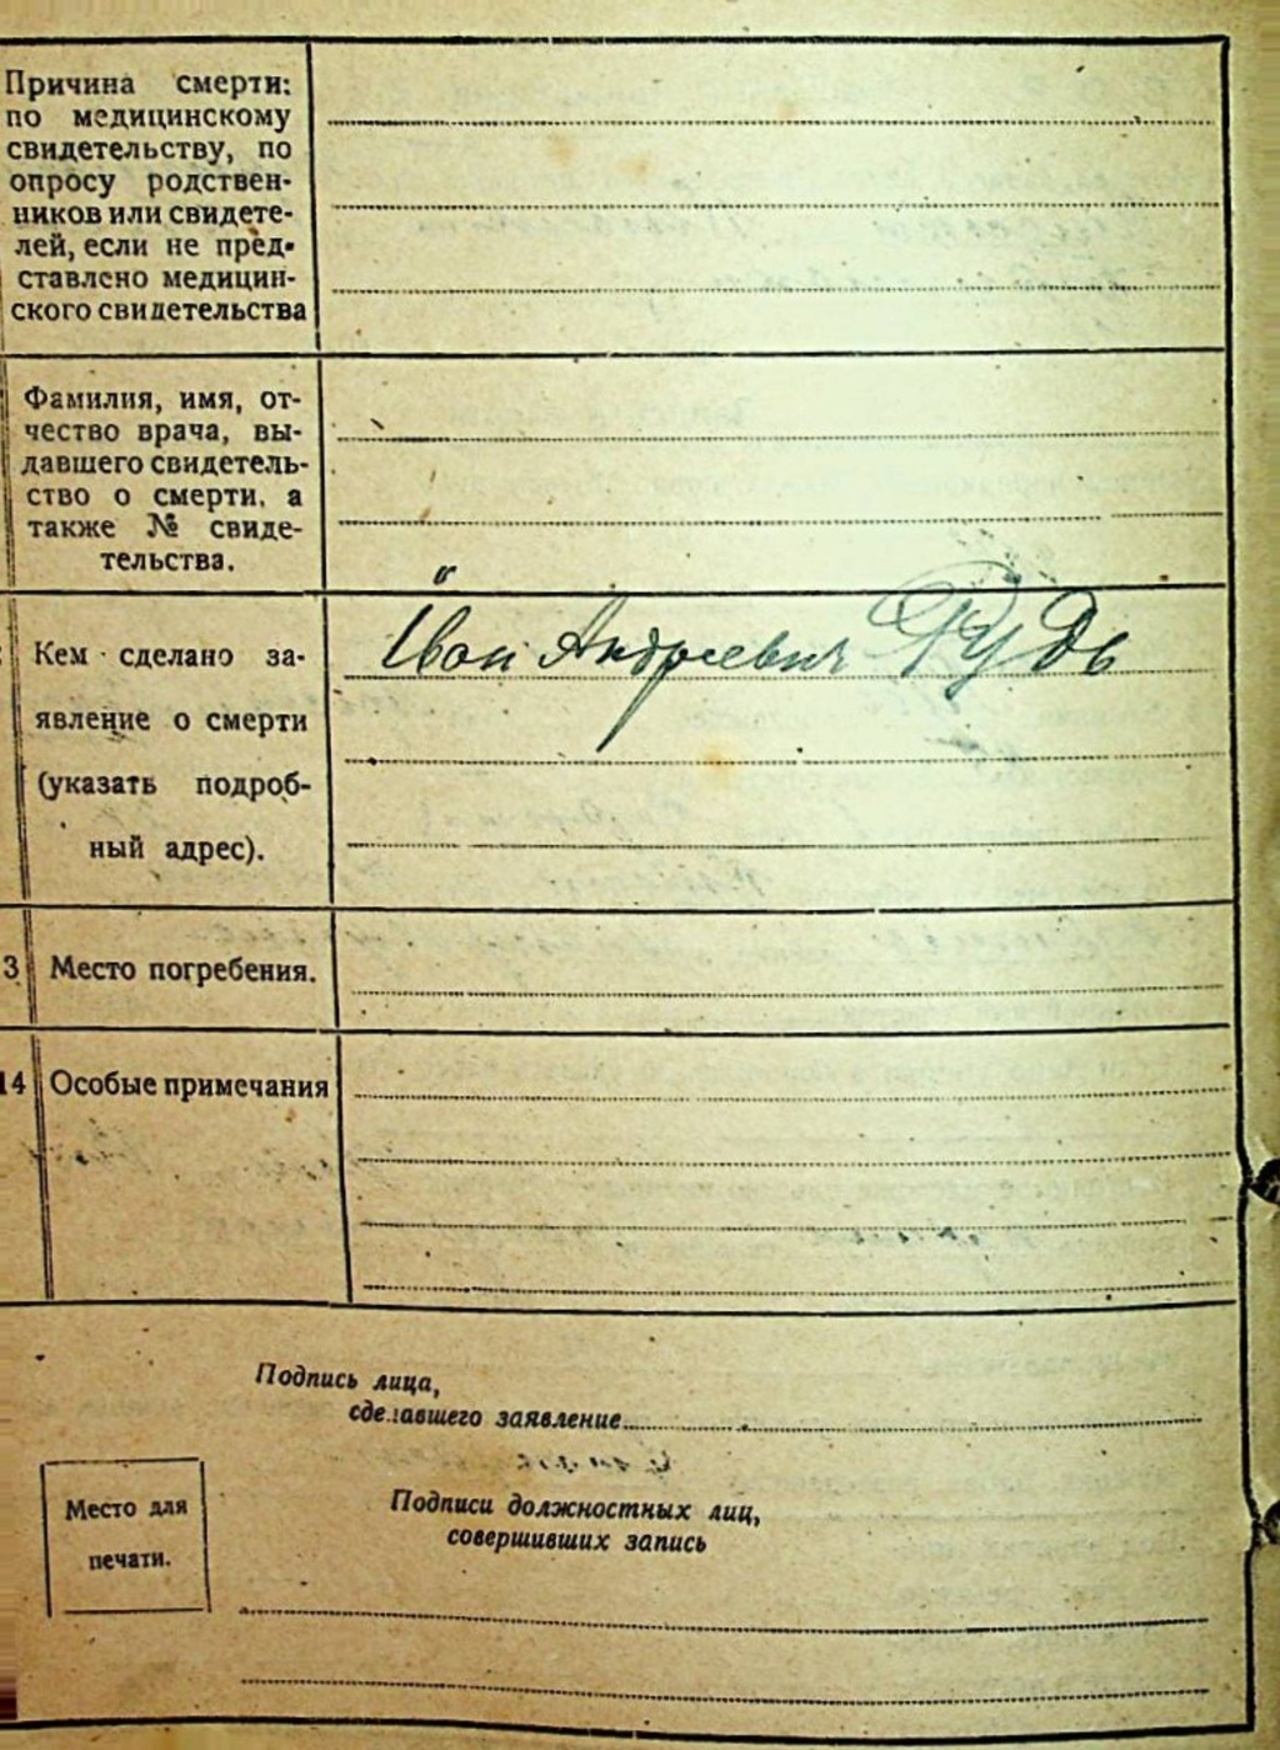 Причина смерти:
по медицинскому
свидетельству, по
опросу родствен-
ников или свидете-
лей, если не пред-
ставлено медицин-
ского свидетельства
Фамилия, имя, от-
чество врача, вы-
давшего свидетель-
ство о смерти, а
также № свиде-
тельства.
Кем сделано за-
явление о смерти
(указать подроб-
ный адрес).
Іван Андреевич Рудь
3 Место погребения.
14 Особые примечания
Подпись лица,
сделавшего заявление
Место для
печати.
Подписи должностных лиц,
совершивших запись